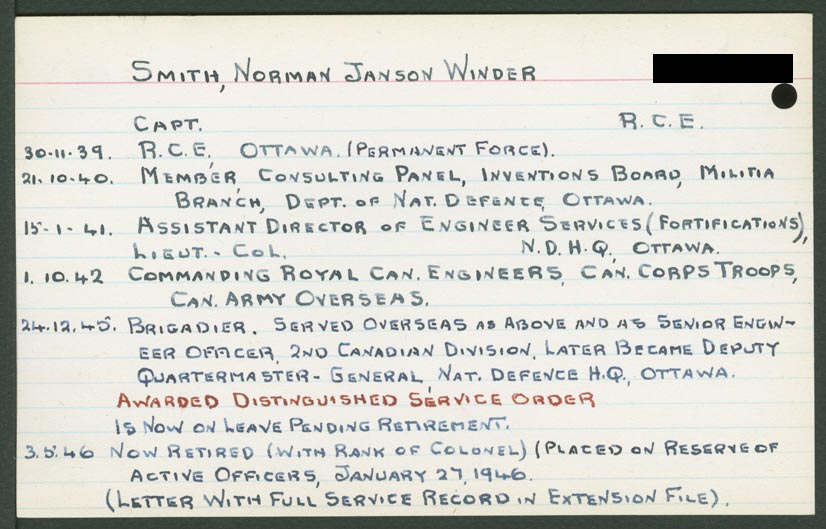 SMITH, NORMAN JANSON WINDER
CAPT. R.C.E.
30.11.39. R.C.E., OTTAWA. (PERMANENT FORCE).
21.10.40. MEMBER, CONSULTING PANEL, INVENTIONS BOARD, MILITIA
BRANCH, DEPT. OF NAT. DEFENCE, OTTAWA.
15-1-41. ASSISTANT DIRECTOR OF ENGINEER SERVICES (FORTIFICATIONS),
LIEUT.-COL. N.D.H.Q., OTTAWA.
1.10.42 COMMANDING ROYAL CAN. ENGINEERS, CAN. CORPS TROOPS,
CAN. ARMY OVERSEAS.
24.12.45. BRIGADIER. SERVED OVERSEAS AS ABOVE AND AS SENIOR ENGIN-
EER OFFICER, 2ND CANADIAN DIVISION, LATER BECAME DEPUTY
QUARTERMASTER-GENERAL, NAT. DEFENCE H.Q., OTTAWA.
AWARDED DISTINGUISHED SERVICE ORDER
IS NOW ON LEAVE PENDING RETIREMENT.
3.5.46 NOW RETIRED (WITH RANK OF COLONEL) (PLACED ON RESERVE OF
ACTIVE OFFICERS, JANUARY 27, 1946.
(LETTER WITH FULL SERVICE RECORD IN EXTENSION FILE).